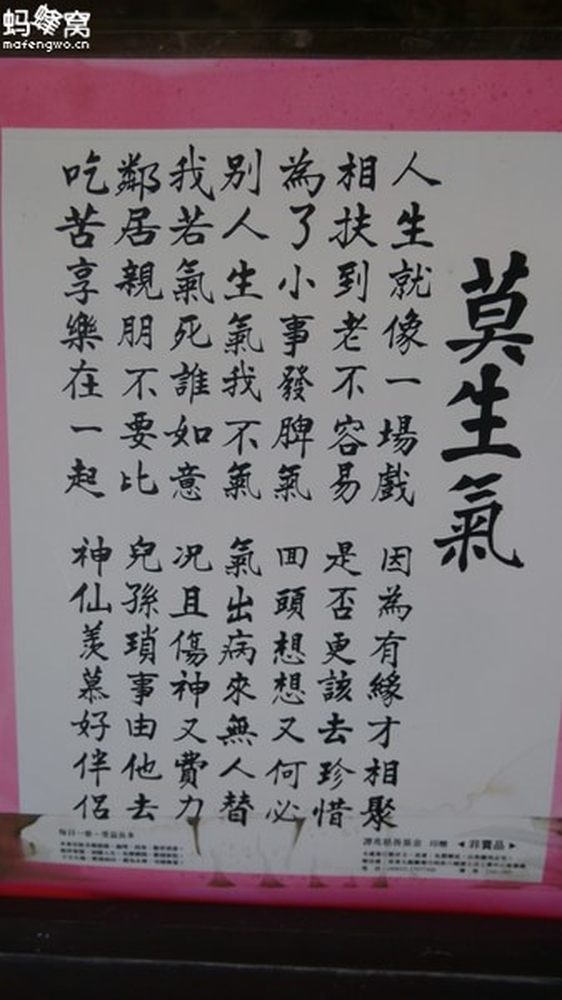 蚂蜂窝
mafengwo.cn
莫生氣
人生就像一場戲 因為有緣才相聚
相扶到老不容易 是否更該去珍惜
為了小事發脾氣 回頭想想又何必
別人生氣我不氣 氣出病來無人替
我若氣死誰如意 況且傷神又費力
鄰居親朋不要比 兒孫瑣事由他去
吃苦享樂在一起 神仙羨慕好伴侶
印贈 ◀非賣品▶